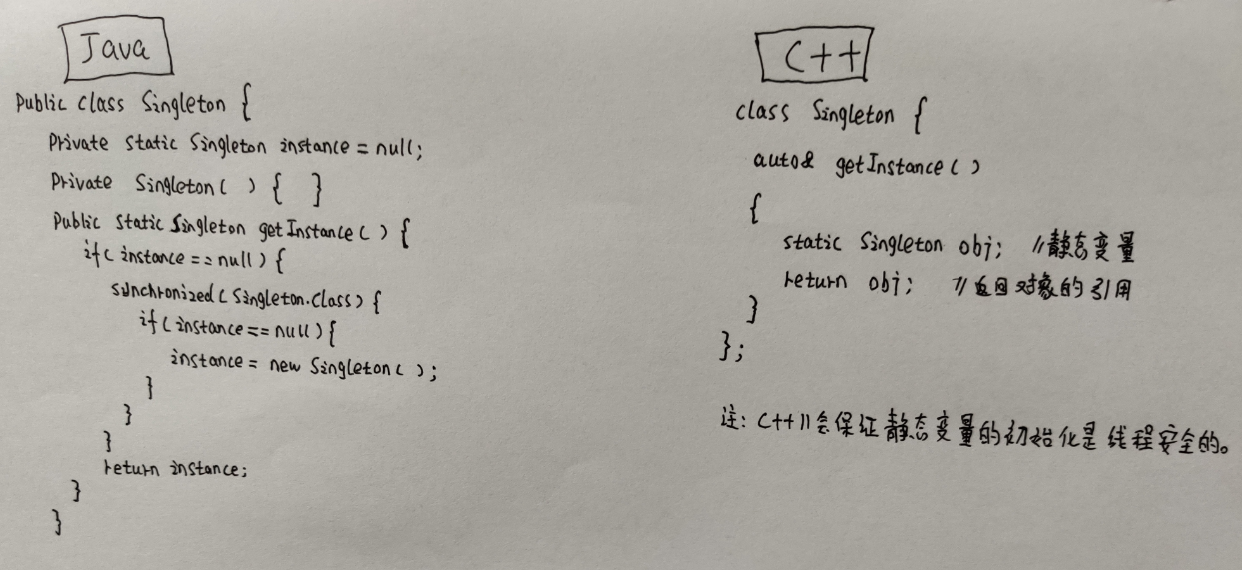 Java
Public class Singleton {
Private static Singleton instance = null;
Private Singleton( ) { }
Public static Singleton getInstance( ) {
if( instance == null ) {
synchronized( Singleton.class) {
if( instance == null ) {
instance = new Singleton( );
}
}
}
return instance;
}
}
C++
class Singleton {
auto& getInstance( )
{
static Singleton obj; //静态变量
return obj; //返回对象的引用
}
};
注: C++11会保证静态变量的初始化是线程安全的。